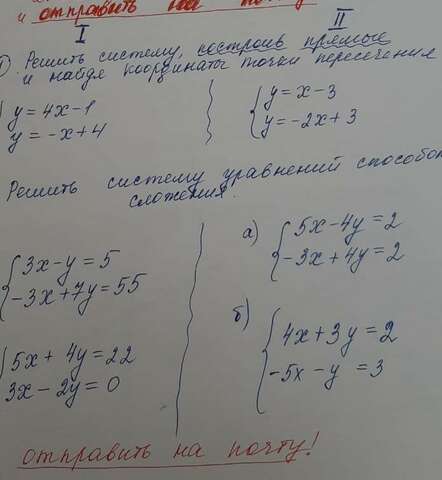 и отправить на почту
I II
Решить систему, построив прямые
и найдя координаты точки пересечения
y = 4x - 1
y = -x + 4
y = x - 3
y = -2x + 3
Решить систему уравнений способом
сложения.
3x - y = 5
-3x + 7y = 55
5x + 4y = 22
3x - 2y = 0
а) 5x - 4y = 2
-3x + 4y = 2
б) 4x + 3y = 2
-5x - y = 3
отправить на почту!